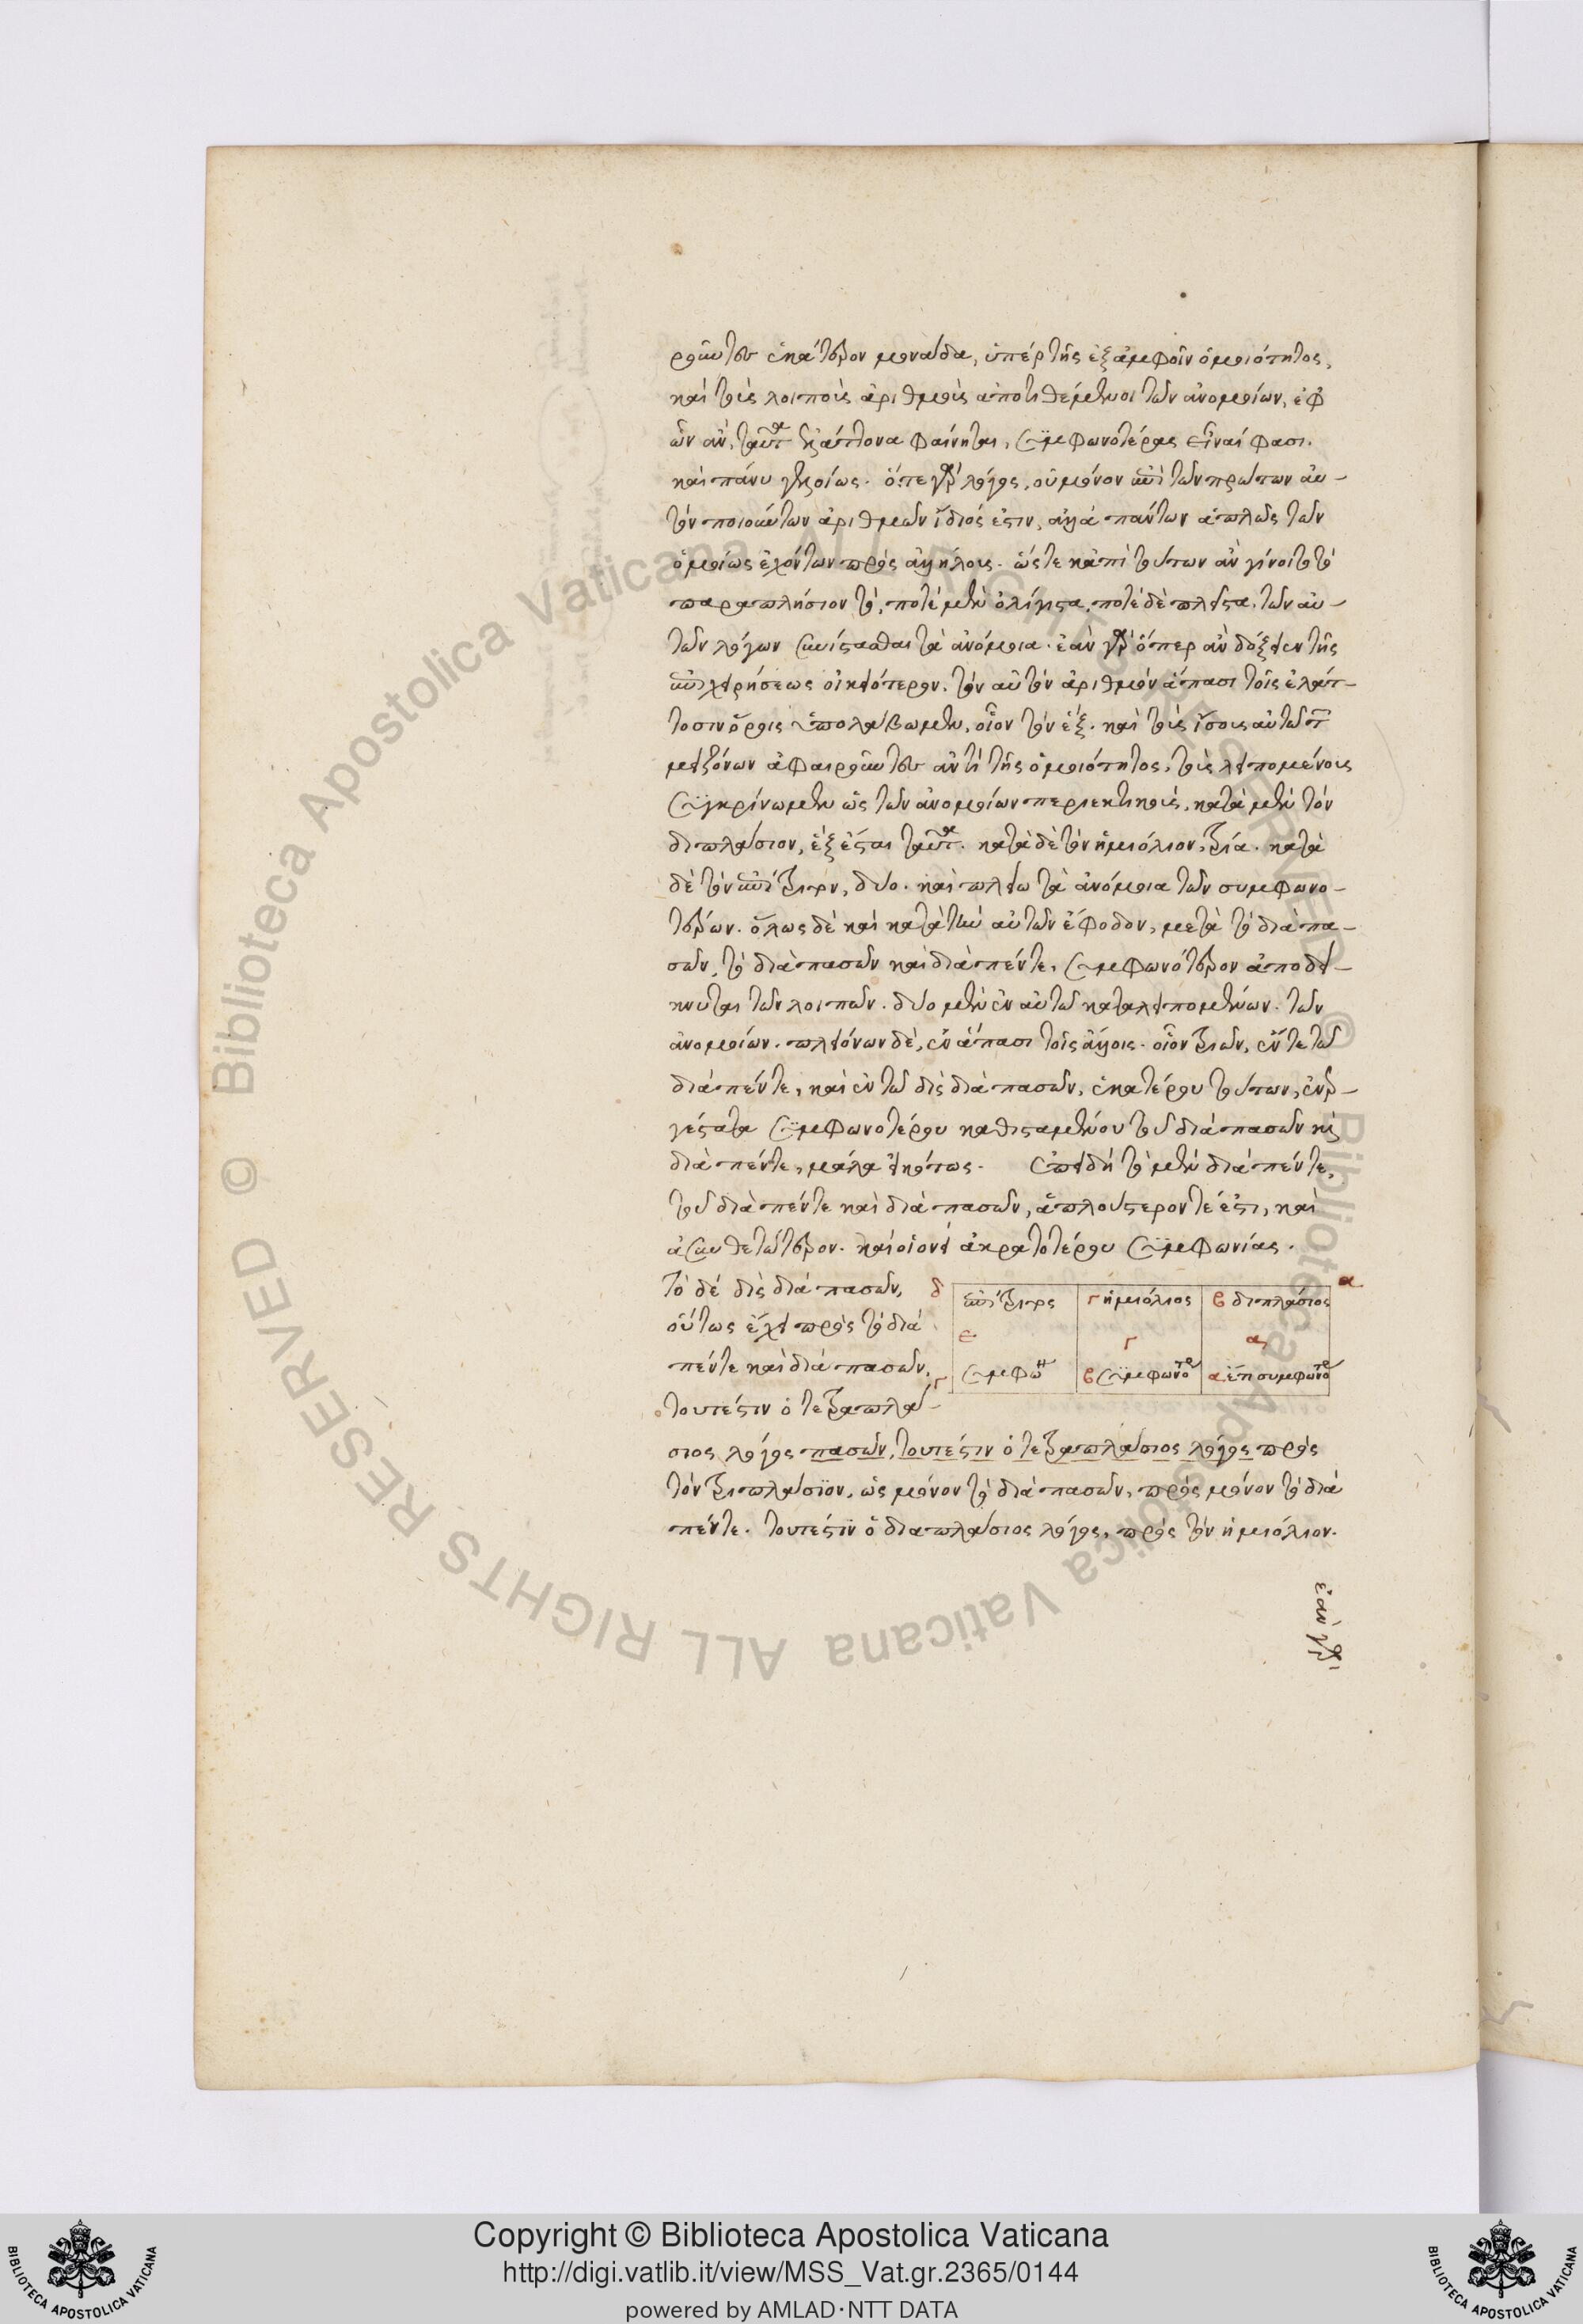 ροῦντες ἑκάτερον μονάδα, ὑπὲρ τῆς ἐξ ἀμφοῖν ὁμοιότητος,
καὶ τοῖς λοιποῖς ἀριθμοῖς ἀποτιθέμενοι τῶν ἀνομοίων, ἐφ
ὧν ἂν, ταῦτα ἐλάττονα φαίνηται, συμφωνοτέρας εἶναί φασι.
καὶ πάνυ γελοίως. ὅ τε γὰρ λόγος, οὐ μόνον ἐπὶ τῶν πρώτων αὐ-
τὸν ποιούντων ἀριθμῶν ἴδιός ἐστιν, ἀλλὰ πάντων ἁπλῶς τῶν
ὁμοίως ἐχόντων πρὸς ἀλλήλους. ὥστε κἀπὶ τούτων ἂν γίνοιτο τὸ
παραπλήσιον τὸ, ποτὲ μὲν ὀλίγιστα, ποτὲ δὲ πλεῖστα, τῶν αὐ-
τῶν λόγων συνίστασθαι τὰ ἀνόμοια. ἐὰν γὰρ ὅπερ ἂν δόξειεν τῆς
ἐπιχειρήσεως οἰκειότερον, τὸν αὐτὸν ἀριθμὸν ἅπασι τοῖς ἐλάτ-
τοσιν ὅροις ὑπολάβωμεν, οἷον τὸν ἕξ. καὶ τοὺς ἴσους αὐτῶ τῶν
μειζόνων ἀφαιροῦντες ἀντὶ τῆς ὁμοιότητος, τοὺς λειπομένους
συγκρίνωμεν ὡς τῶν ἀνομοίων περιεκτικοὺς, κατὰ μὲν τὸν
διπλάσιον, ἓξ ἔσται ταῦτα. κατὰ δὲ τὸν ἡμιόλιον, τρία. κατὰ
δὲ τὸν ἐπίτριτον, δύο. καὶ πλείω τὰ ἀνόμοια τῶν συμφωνο-
τέρων. ὅλως δὲ καὶ κατὰ τὴν αὐτῶν ἔφοδον, μετὰ τὸ διὰ πα-
σῶν, τὸ διὰ πασῶν καὶ διὰ πέντε, συμφωνότερον ἀποδεί-
κνυται τῶν λοιπῶν. δύο μὲν ἐν αὐτῶ καταλειπομένων. τῶν
ἀνομοίων. πλειόνων δὲ, ἐν ἅπασι τοῖς ἄλλοις. οἷον τριῶν, ἔν τε τῶ
διὰ πέντε, καὶ ἐν τῶ δὶς διὰ πασῶν, ἑκατέρου τούτων, ἐναρ-
γέστατα συμφωνοτέρου καθισταμένου τοῦ διὰ πασῶν καὶ
διὰ πέντε, μάλα εἰκότως. ἐπειδὴ τὸ μὲν διὰ πέντε,
τοῦ διὰ πέντε καὶ διὰ πασῶν, ἁπλούστερον τέ ἐστι, καὶ
ἀσυνθετώτερον. καὶ οἱονεὶ ἀκρατοτέρου συμφωνίας.
τὸ δὲ δὶς διὰ πασῶν,
οὕτως ἔχει πρὸς τὸ διὰ
πέντε καὶ διὰ πασῶν,
τουτέστιν ὁ τετραπλά-
δ ἐπίτριτος γ ἡμιόλιος β διπλάσιος α
ε γ α
γ συμφωνη β συμφωνοτε α ἔτι συμφωνοτε
σιος λόγος πασῶν, τουτέστιν ὁ τετραπλάσιος λόγος πρὸς
τὸν τριπλάσιον, ὡς μόνον τὸ διὰ πασῶν, πρὸς μόνον τὸ διὰ
πέντε. τουτέστιν ὁ διαπλάσιος λόγος, πρὸς τὸν ἡμιόλιον.
ἐὰν γὰρ
© Biblioteca Apostolica Vaticana ALL RIGHTS RESERVED © Biblioteca Apostolica Vaticana ALL RIGHTS RESERVED
Copyright © Biblioteca Apostolica Vaticana
http://digi.vatlib.it/view/MSS_Vat.gr.2365/0144
powered by AMLAD·NTT DATA
BIBLIOTECA APOSTOLICA VATICANA
BIBLIOTECA APOSTOLICA VATICANA